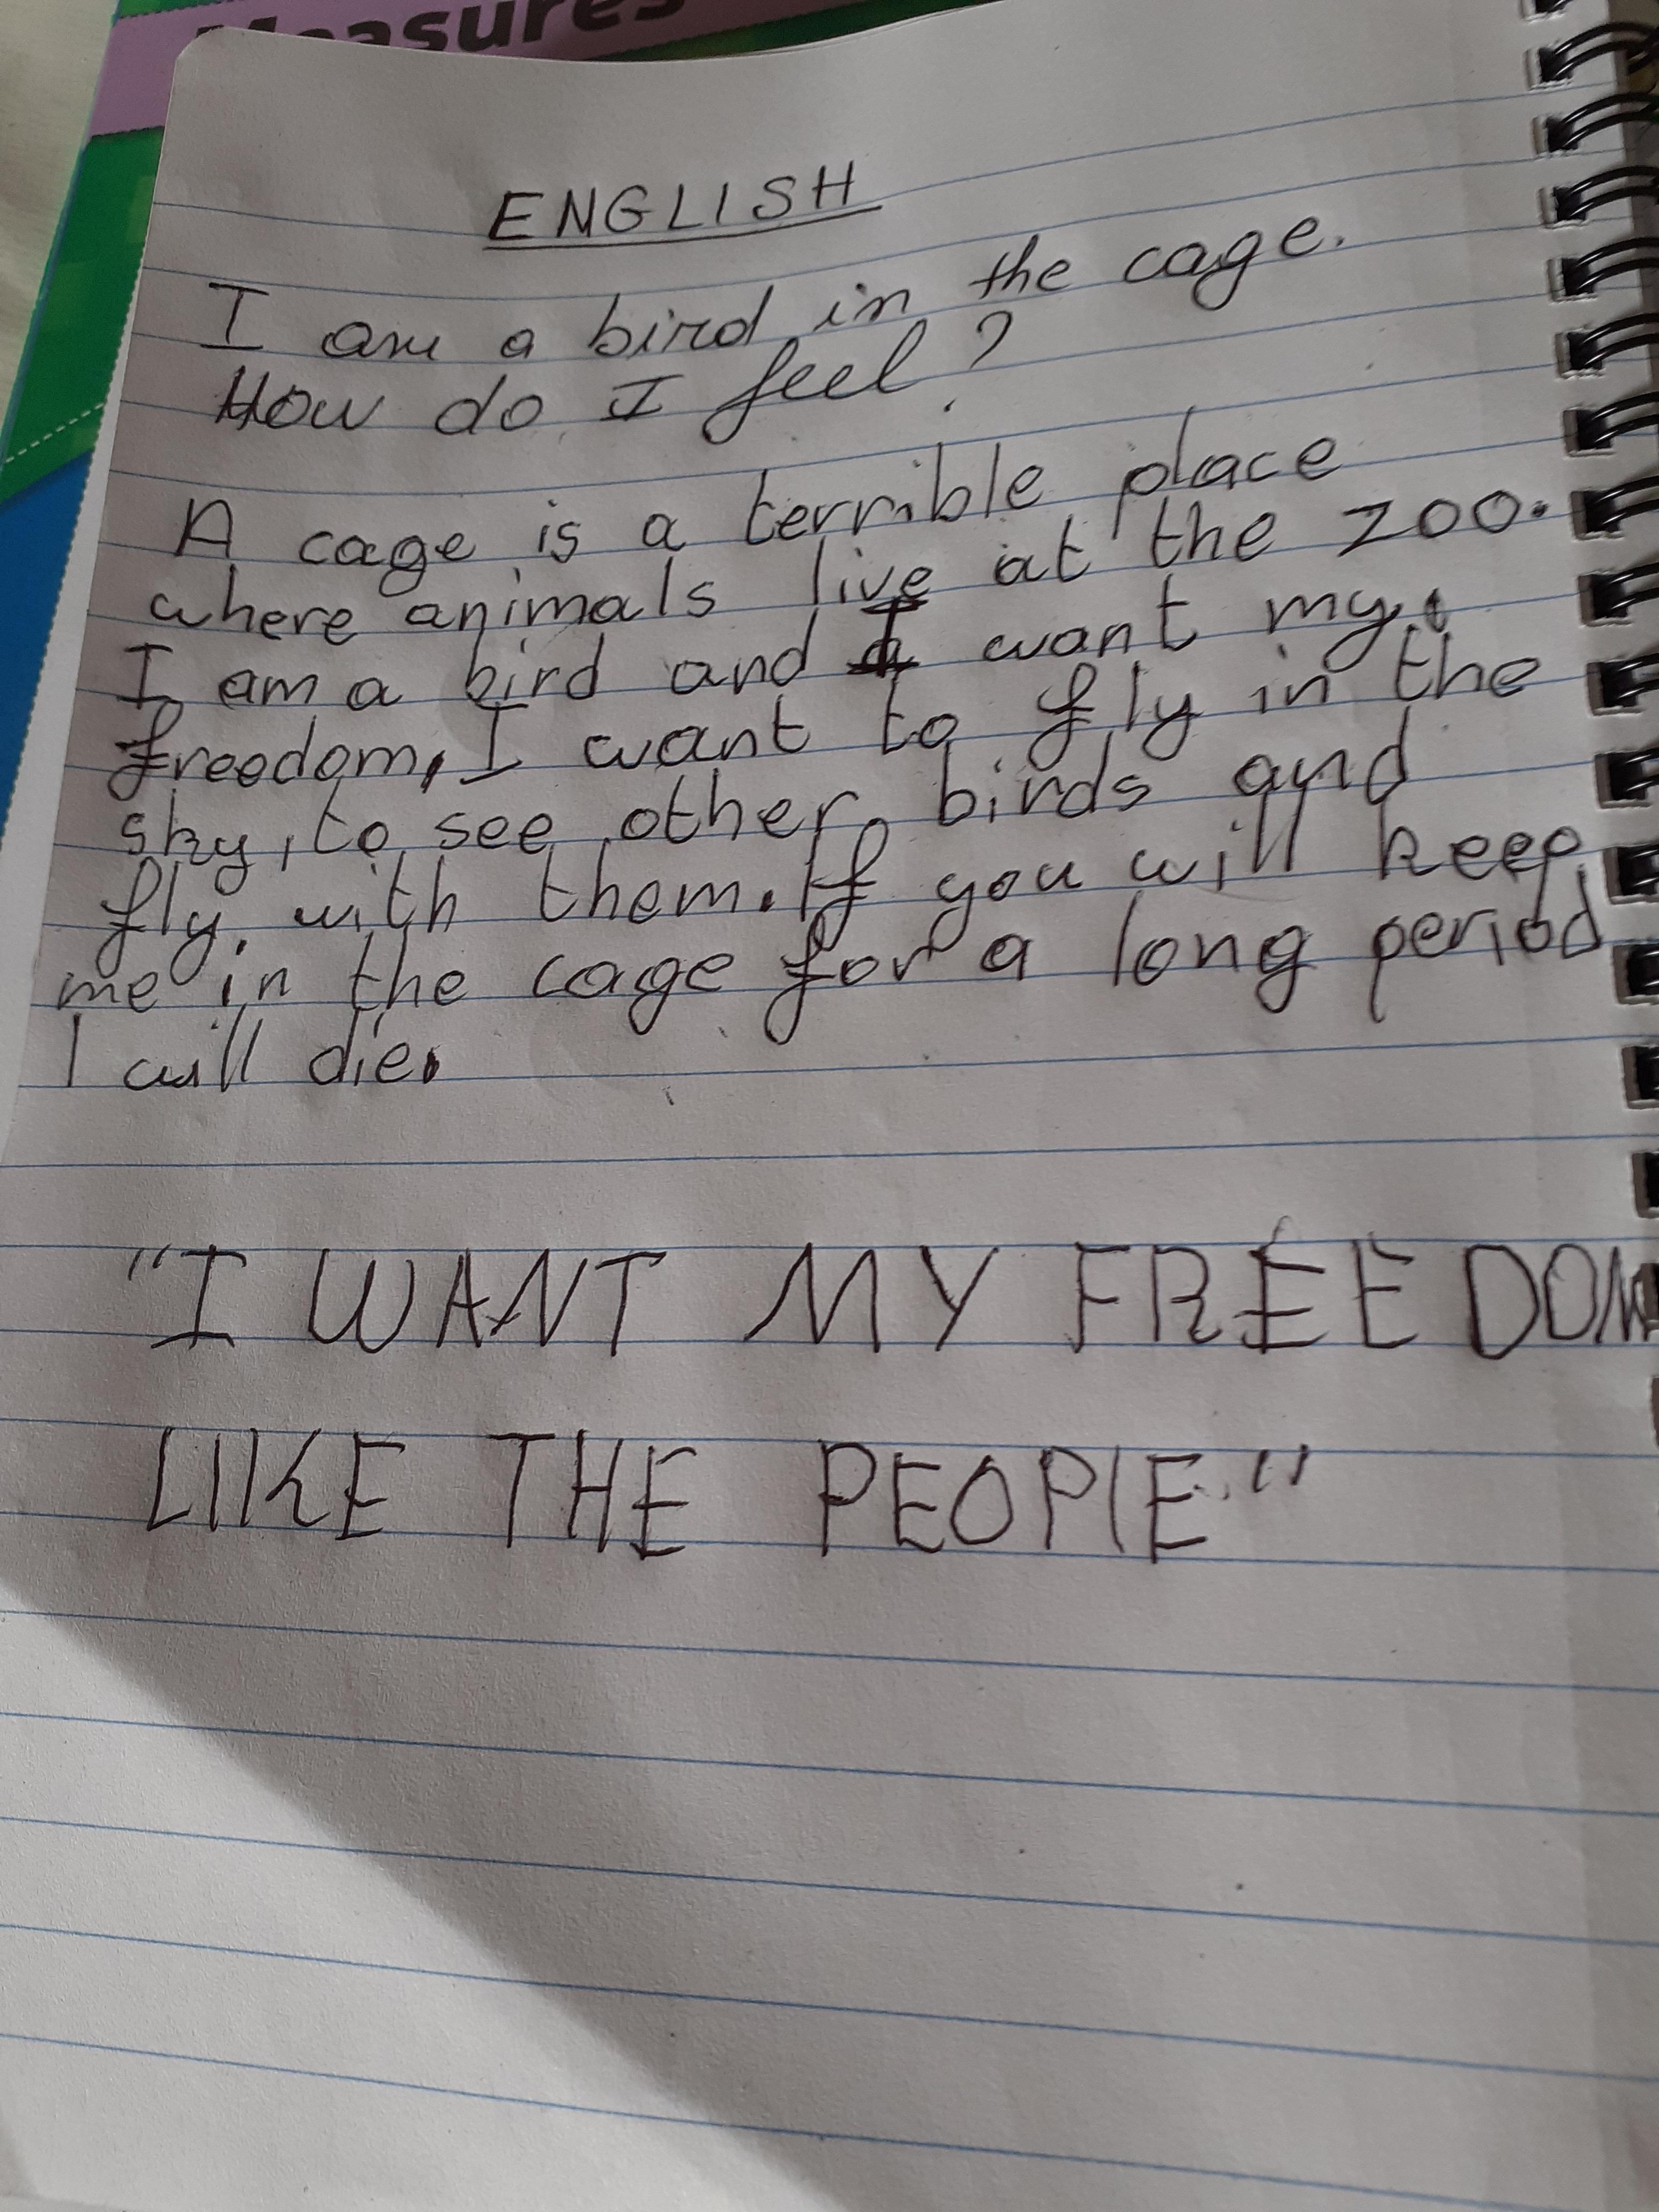 Measures
ENGLISH
I am a bird in the cage.
How do I feel?
A cage is a terrible place
where animals live at the zoo.
I am a bird and I want my
freedom, I want to fly in the
sky, to see other birds and
fly with them. If you will keep
me in the cage for a long period
I will die.
"I WANT MY FREEDOM
LIKE THE PEOPLE"